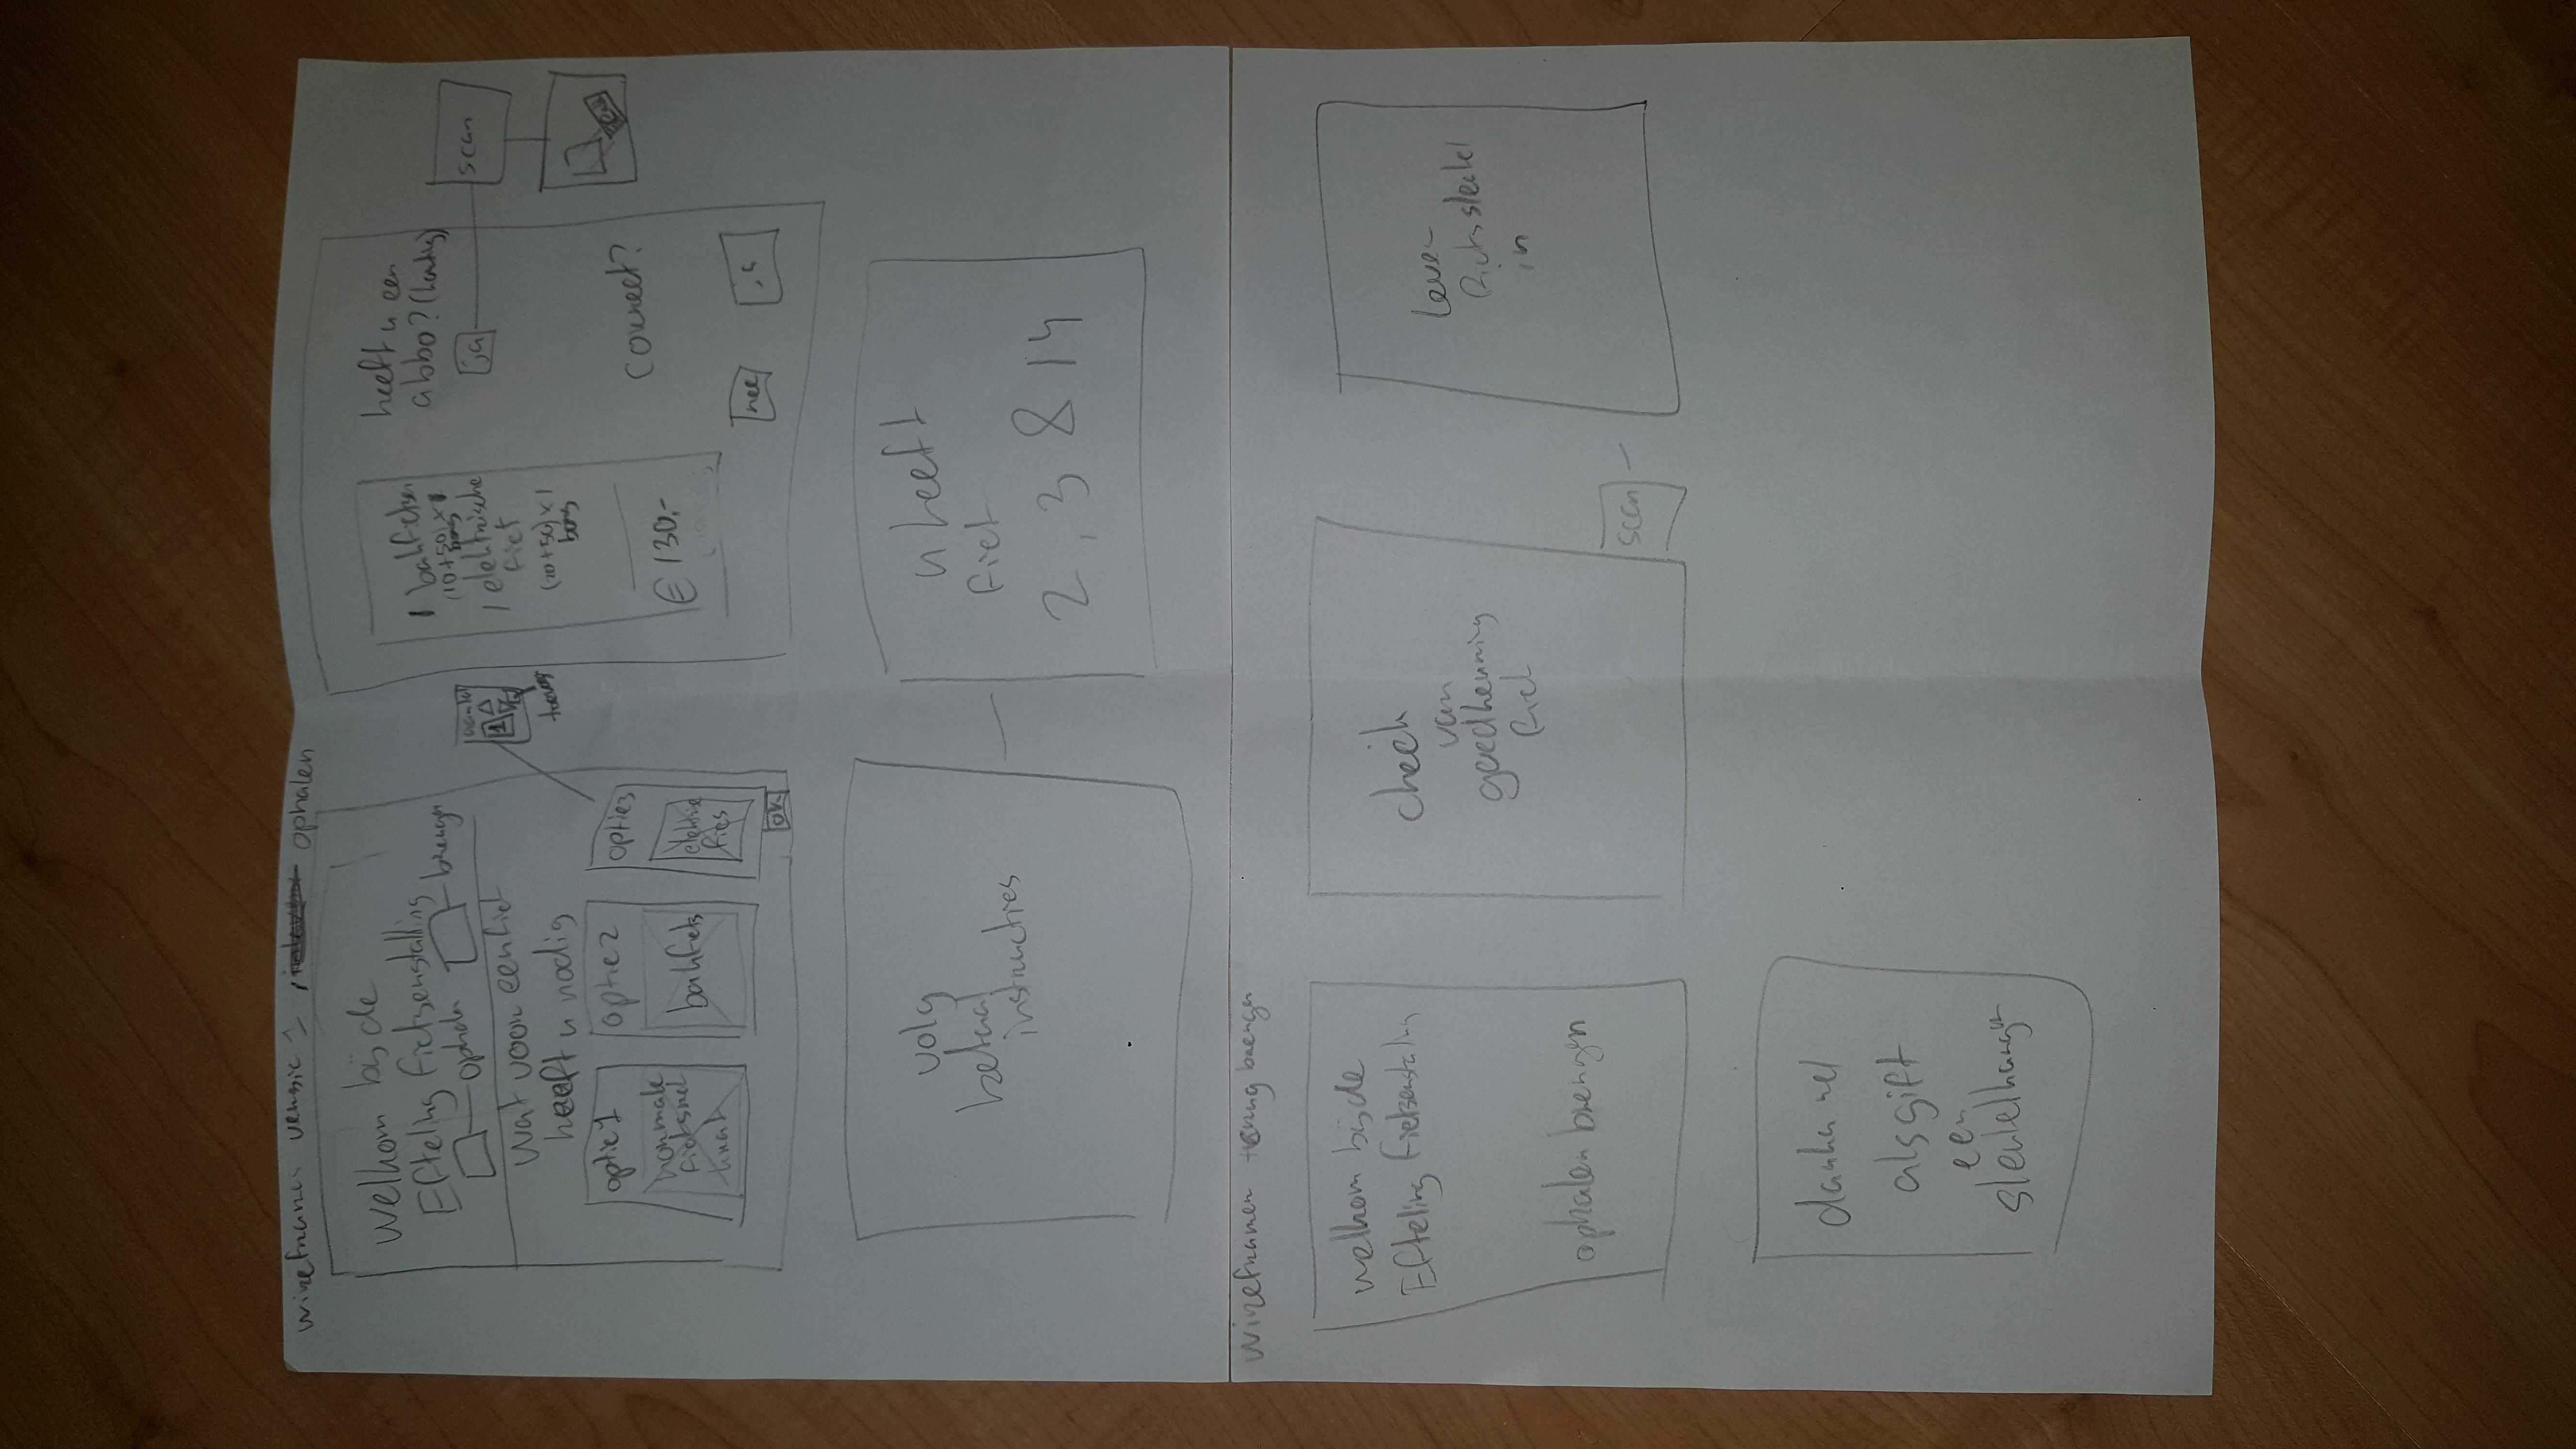 wireframes versie 1 ophalen
Welkom bij de
Efteling fietsenstalling
ophalen brengen
wat voor een fiet
heeft u nodig
optie 1
normale
fiets met
krat
optie 2
bakfiets
optie 3
elektrise
fies
ok
aantal
1
1 bakfietsen
(10+50) x 1
borg
1 elektrische
fiet
(20+50) x 1
borg
€ 130,-
heeft u een
abbo? (korting)
ja
scan
correct?
nee
ja
volg
betaal
instructies
u heeft
fiet
2, 3 8 14
wireframen terug brengen
welkom bij de
Efteling fietsenstalling
ophalen brengen
check
van
goedkeuring
fiet
scan
lever
fietssleutel
in
danku wel
als gift
een
sleutelhanger